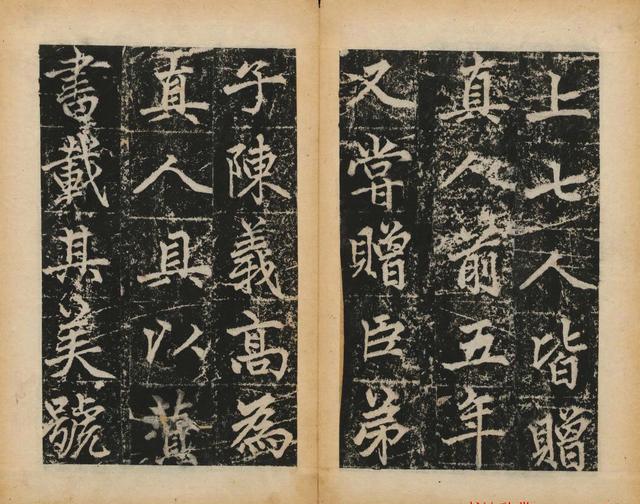 上七人皆贈
真人前五年
又嘗贈臣弟
子陳義高為
真人具以
書載其美號